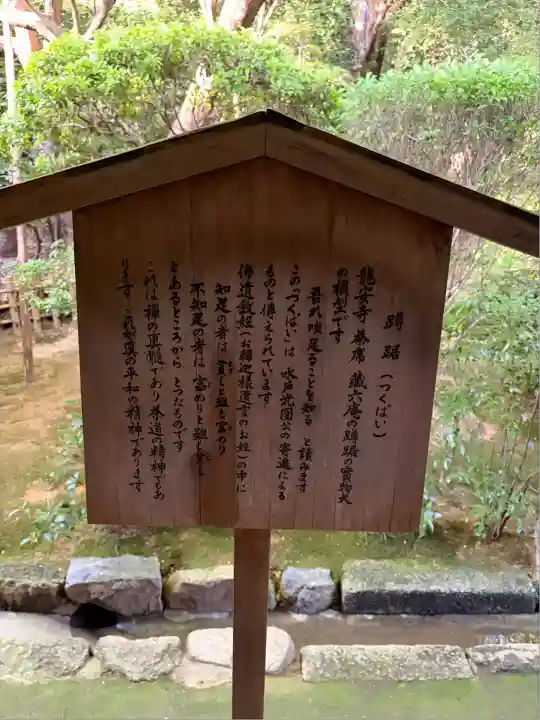 蹲踞(つくばい)
龍安寺 茶席 藏六庵の蹲踞の實物大
の模型です
吾れ唯足ることを知る と讀みます
この「つくばい」は 水戸光圀公の寄進による
ものと傳えられています
佛遺教經(お釋迦様遺言のお経)の中に
知足の者は 貧しと雖も富めり
不知足の者は 富めりと雖も貧し
とあるところから とつたものです
これは禅の真髄であり茶道の精神でもあ
ります これが真の平和の精神であります